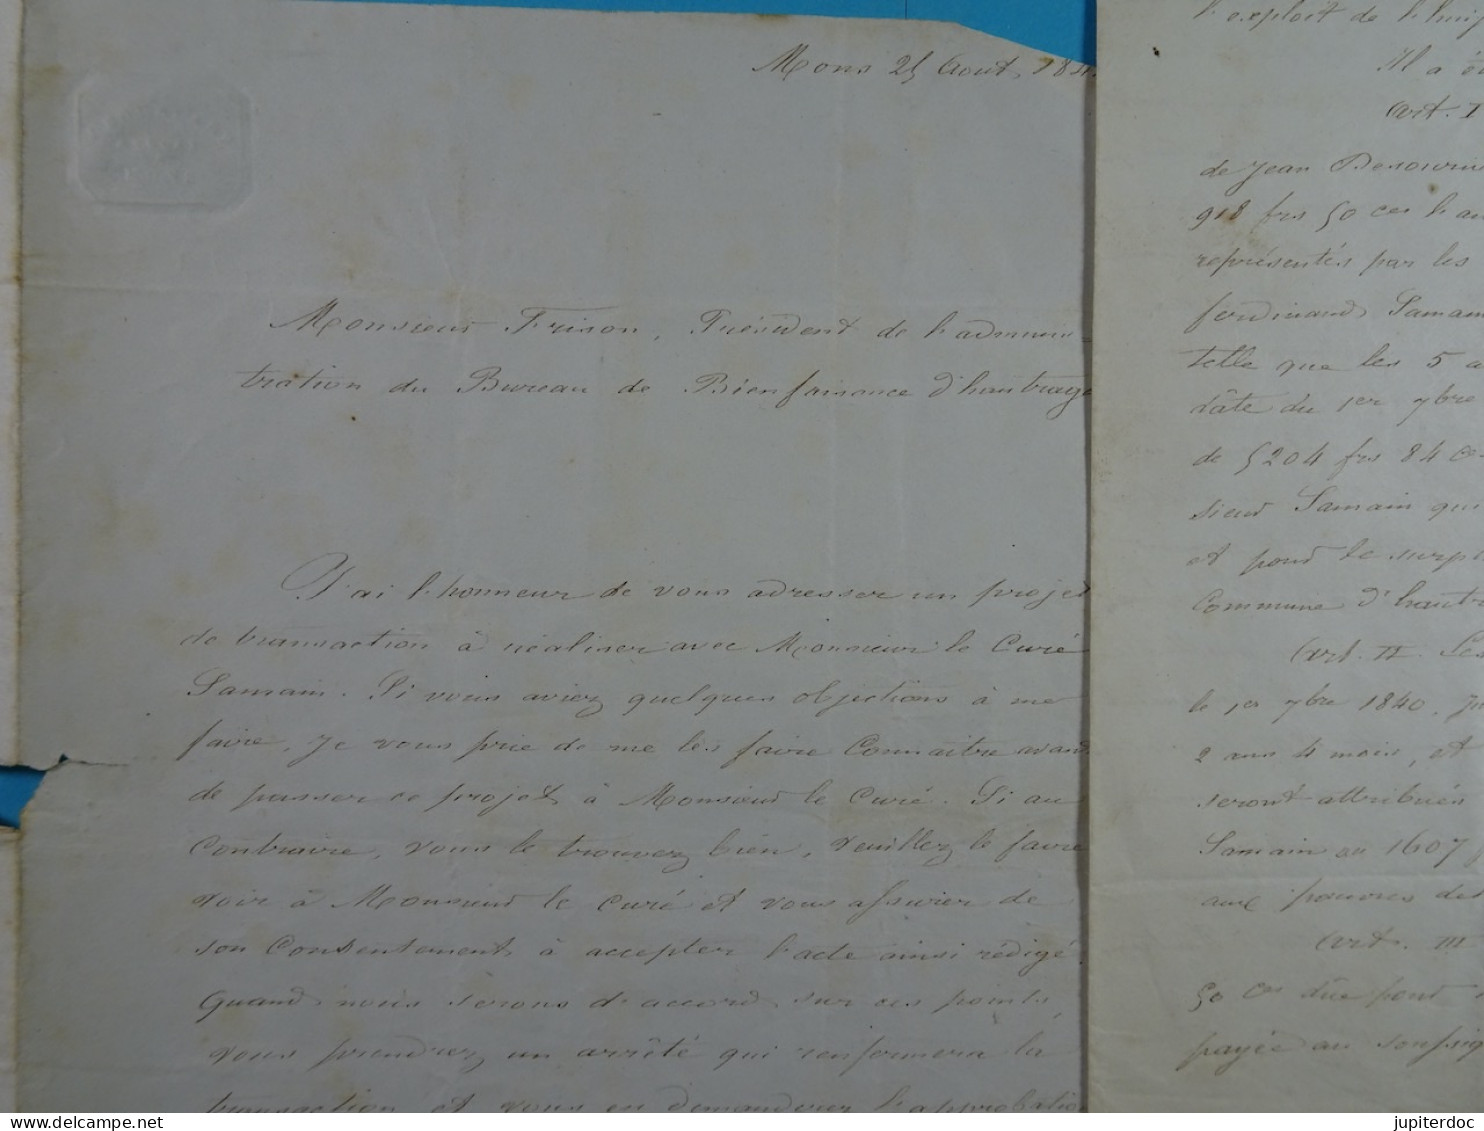 Mons 25 Aout 184
Monsieur Frison, Président de l'adminis-
tration du Bureau de Bienfaisance d'hautrage
J'ai l'honneur de vous adresser un projet
de transaction à réaliser avec Monsieur le Curé
Samain. Si vous aviez quelques objections à me
faire, je vous prie de me les faire Connaitre avant
de passer ce projet à Monsieur le Curé. Si au
Contraire, vous le trouvez bien, veuillez le faire
voir à Monsieur le Curé et vous assurer de
son Consentement à accepter l'acte ainsi rédigé.
Quand nous serons d'accord sur ces points,
vous prendrez un arrêté qui renfermera la
transaction et vous en demanderez l'approbation
l'exploit de l'huis
Il a é
art. I
de Jean
918 frs 50 ces
représentés par les
ferdinand Samain
telle que les 5 a
dâte du 1er 7bre
de 5204 frs 84 ces
sieur Samain qui
et pour le surpl
Commune d'hautr
art. II. Les
le 1er 7bre 1840.
2 ans 4 mois, et
seront attribués
Samain ou 1607
aux pauvres de
art. III
50 ces dûe pour
payée au
jupiterdoc